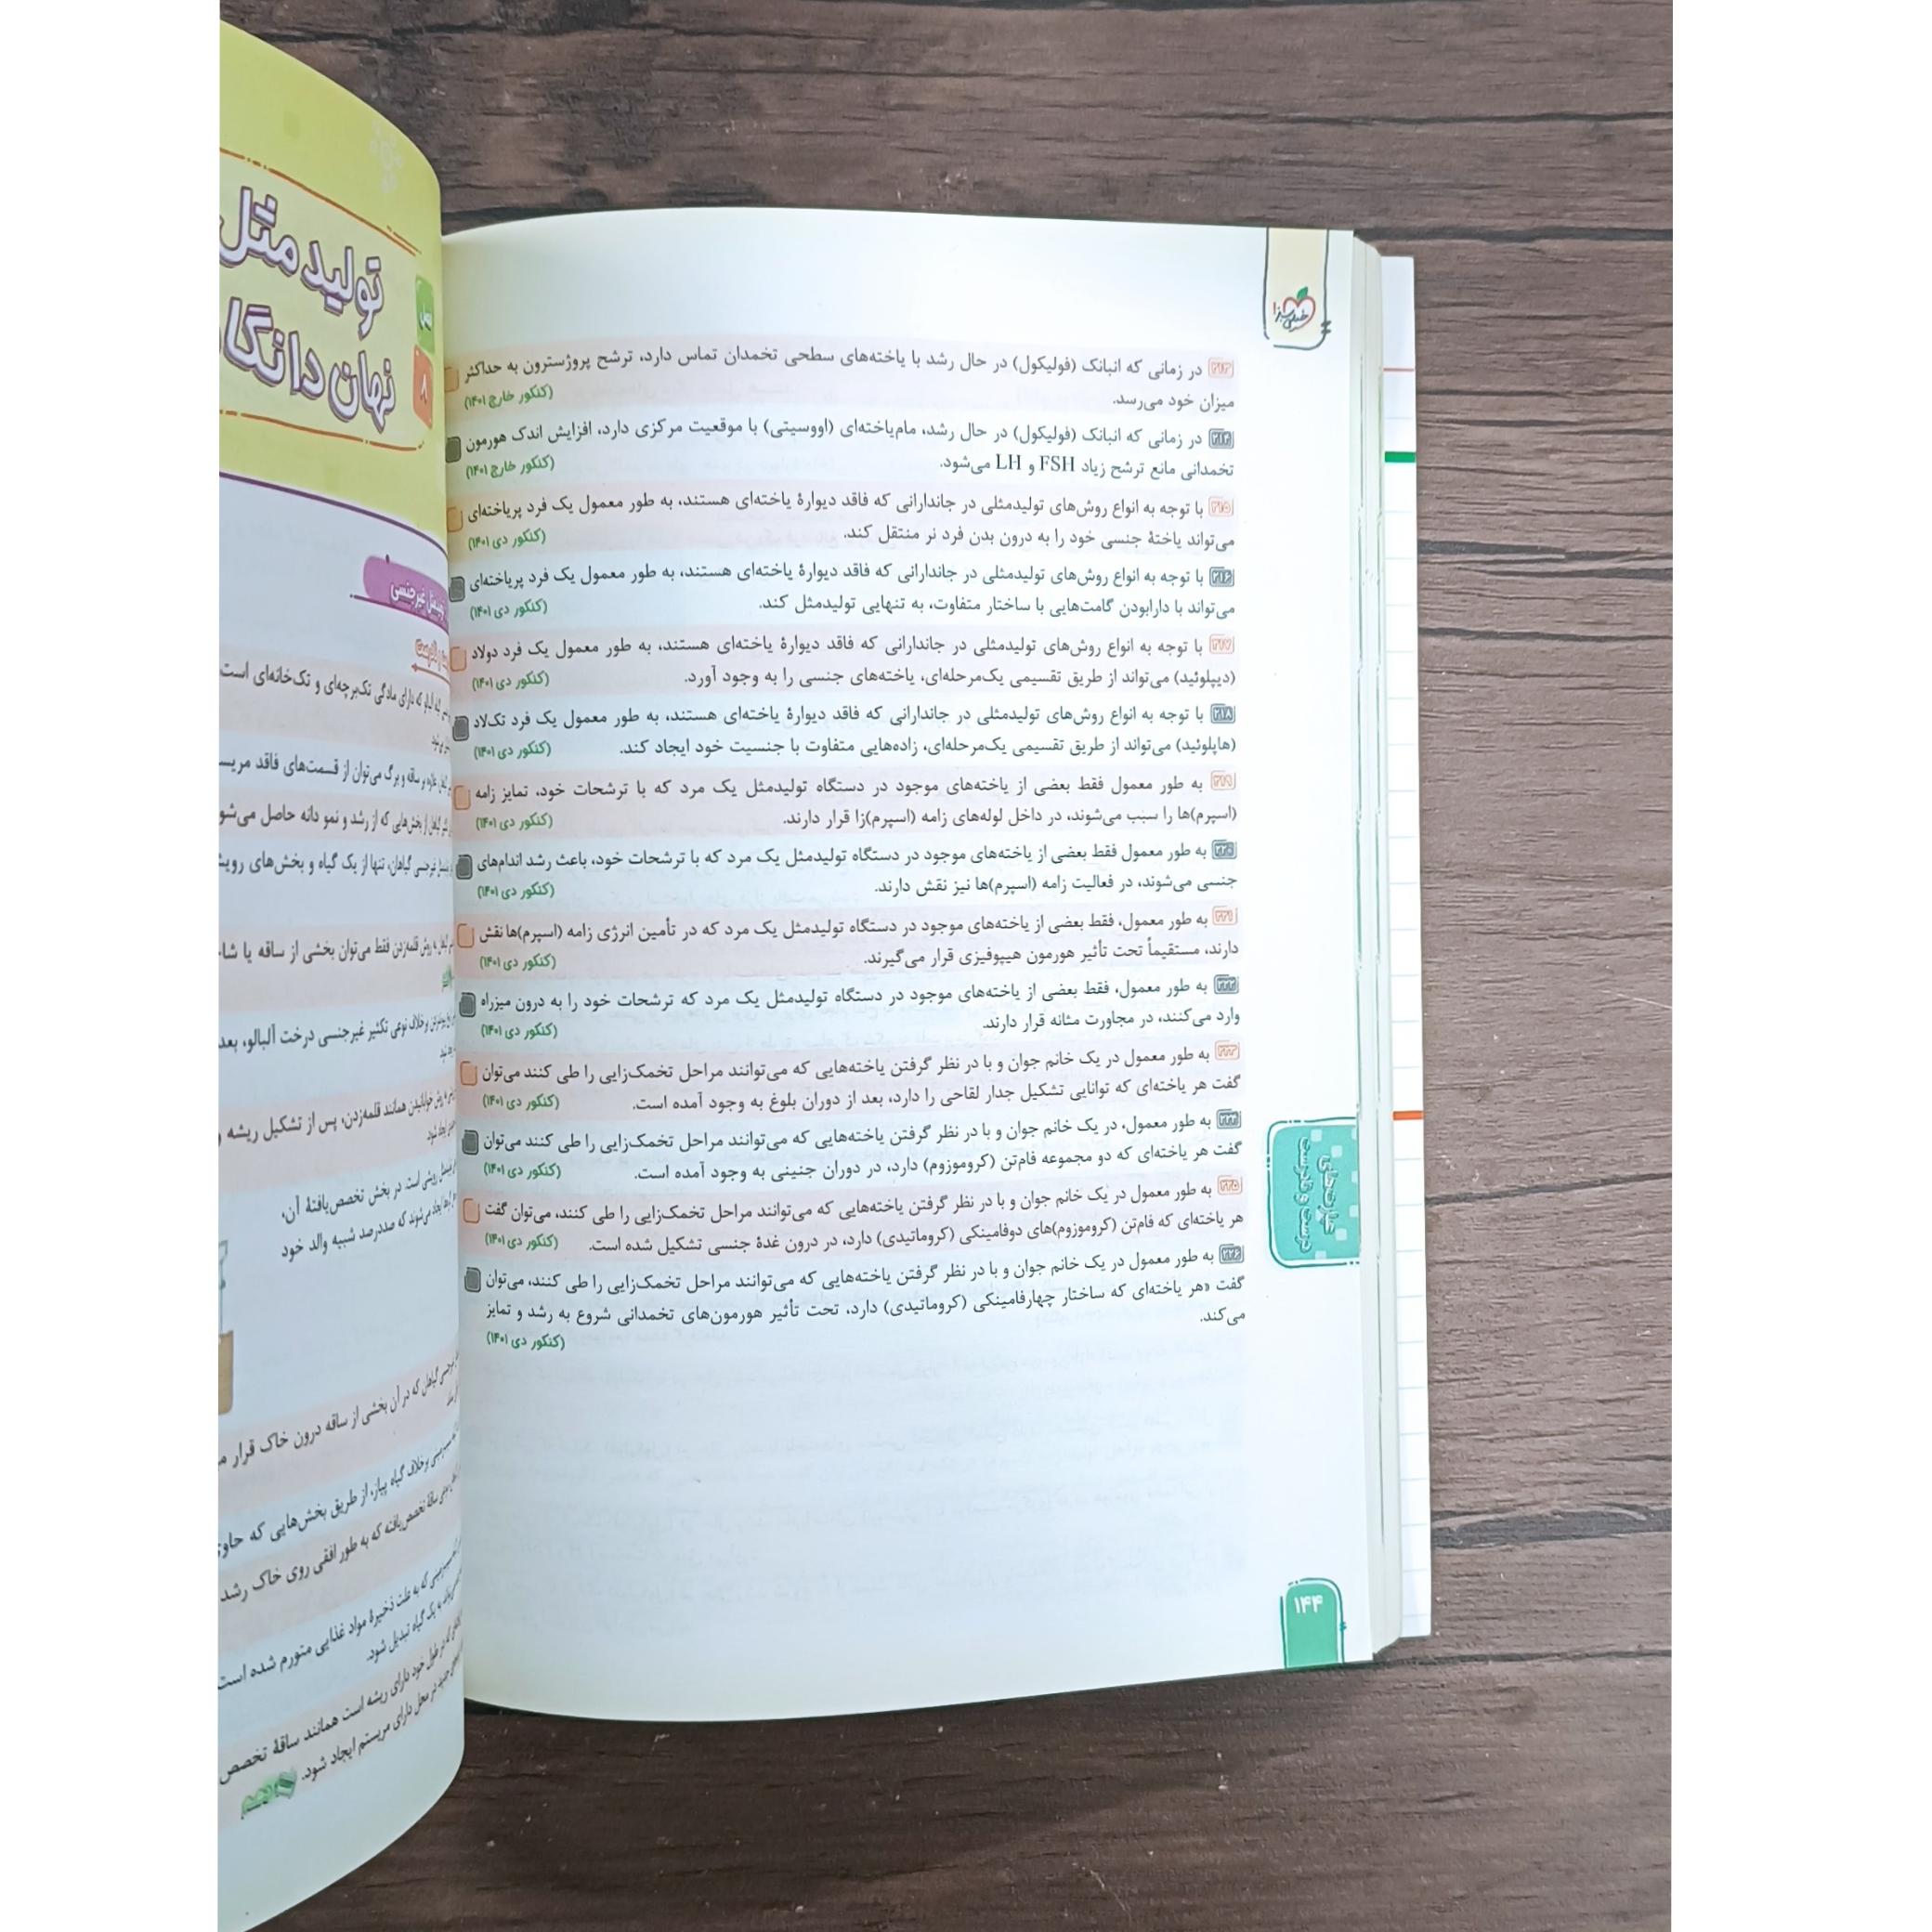 خیلی سبز
۲۱۳ در زمانی که انبانک (فولیکول) در حال رشد با یاخته‌های سطحی تخمدان تماس دارد، ترشح پروژسترون به حداکثر
میزان خود می‌رسد. (کنکور خارج ۱۴۰۱)
۲۱۴ در زمانی که انبانک (فولیکول) در حال رشد، مام‌یاخته‌ای (اووسیتی) با موقعیت مرکزی دارد، افزایش اندک هورمون
تخمدانی مانع ترشح زیاد FSH و LH می‌شود. (کنکور خارج ۱۴۰۱)
۲۱۵ با توجه به انواع روش‌های تولیدمثلی در جاندارانی که فاقد دیوارهٔ یاخته‌ای هستند، به طور معمول یک فرد پریاخته‌ای
می‌تواند یاختهٔ جنسی خود را به درون بدن فرد نر منتقل کند. (کنکور دی ۱۴۰۱)
۲۱۶ با توجه به انواع روش‌های تولیدمثلی در جاندارانی که فاقد دیوارهٔ یاخته‌ای هستند، به طور معمول یک فرد پریاخته‌ای
می‌تواند با دارابودن گامت‌هایی با ساختار متفاوت، به تنهایی تولیدمثل کند. (کنکور دی ۱۴۰۱)
۲۱۷ با توجه به انواع روش‌های تولیدمثلی در جاندارانی که فاقد دیوارهٔ یاخته‌ای هستند، به طور معمول یک فرد دولاد
(دیپلوئید) می‌تواند از طریق تقسیمی یک‌مرحله‌ای، یاخته‌های جنسی را به وجود آورد. (کنکور دی ۱۴۰۱)
۲۱۸ با توجه به انواع روش‌های تولیدمثلی در جاندارانی که فاقد دیوارهٔ یاخته‌ای هستند، به طور معمول یک فرد تک‌لاد
(هاپلوئید) می‌تواند از طریق تقسیمی یک‌مرحله‌ای، زاده‌هایی متفاوت با جنسیت خود ایجاد کند. (کنکور دی ۱۴۰۱)
۲۱۹ به طور معمول فقط بعضی از یاخته‌های موجود در دستگاه تولیدمثل یک مرد که با ترشحات خود، تمایز زامه
(اسپرم)ها را سبب می‌شوند، در داخل لوله‌های زامه (اسپرم)زا قرار دارند. (کنکور دی ۱۴۰۱)
۲۲۰ به طور معمول فقط بعضی از یاخته‌های موجود در دستگاه تولیدمثل یک مرد که با ترشحات خود، باعث رشد اندام‌های
جنسی می‌شوند، در فعالیت زامه (اسپرم)ها نیز نقش دارند. (کنکور دی ۱۴۰۱)
۲۲۱ به طور معمول، فقط بعضی از یاخته‌های موجود در دستگاه تولیدمثل یک مرد که در تأمین انرژی زامه (اسپرم)ها نقش
دارند، مستقیماً تحت تأثیر هورمون هیپوفیزی قرار می‌گیرند. (کنکور دی ۱۴۰۱)
۲۲۲ به طور معمول، فقط بعضی از یاخته‌های موجود در دستگاه تولیدمثل یک مرد که ترشحات خود را به درون میزراه
وارد می‌کنند، در مجاورت مثانه قرار دارند. (کنکور دی ۱۴۰۱)
۲۲۳ به طور معمول در یک خانم جوان و با در نظر گرفتن یاخته‌هایی که می‌توانند مراحل تخمک‌زایی را طی کنند می‌توان
گفت هر یاخته‌ای که توانایی تشکیل جدار لقاحی را دارد، بعد از دوران بلوغ به وجود آمده است. (کنکور دی ۱۴۰۱)
۲۲۴ به طور معمول، در یک خانم جوان و با در نظر گرفتن یاخته‌هایی که می‌توانند مراحل تخمک‌زایی را طی کنند می‌توان
گفت هر یاخته‌ای که دو مجموعه فام‌تن (کروموزوم) دارد، در دوران جنینی به وجود آمده است. (کنکور دی ۱۴۰۱)
۲۲۵ به طور معمول در یک خانم جوان و با در نظر گرفتن یاخته‌هایی که می‌توانند مراحل تخمک‌زایی را طی کنند، می‌توان گفت
هر یاخته‌ای که فام‌تن (کروموزوم)های دوفامینکی (کروماتیدی) دارد، در درون غدهٔ جنسی تشکیل شده است. (کنکور دی ۱۴۰۱)
۲۲۶ به طور معمول در یک خانم جوان و با در نظر گرفتن یاخته‌هایی که می‌توانند مراحل تخمک‌زایی را طی کنند، می‌توان
گفت «هر یاخته‌ای که ساختار چهارفامینکی (کروماتیدی) دارد، تحت تأثیر هورمون‌های تخمدانی شروع به رشد و تمایز
می‌کند. (کنکور دی ۱۴۰۱)
عبارت‌های
درست و نادرست
۱۴۴
فصل
۸
تولید مثل
نهان دانگا
غیرجنسی
که دارای مادگی تک‌برچه‌ای و تک‌خانه‌ای است
علاوه بر ساقه و برگ می‌توان از قسمت‌های فاقد
از بخش‌هایی که از رشد و نمو دانه حاصل می‌شو
غیرجنسی گیاهان، تنها از یک گیاه و بخش‌های
به روش قلمه‌زدن فقط می‌توان بخشی از ساقه یا
برخلاف نوعی تکثیر غیرجنسی درخت آلبالو، بعد
خوابانیدن همانند قلمه‌زدن، پس از تشکیل ریشه و
روشی است در بخش تخصص‌یافتهٔ آن،
ایجاد می‌شوند که صددرصد شبیه والد خود
گیاهان که در آن بخشی از ساقه درون خاک قرار
برخلاف گیاه پیاز، از طریق بخش‌هایی که
ساقهٔ تخصص‌یافته که به طور افقی روی خاک رشد
که به علت ذخیرهٔ مواد غذایی متورم شده است
به یک گیاه تبدیل شود.
در طول خود دارای ریشه است همانند ساقهٔ تخصص
در محل دارای مریستم ایجاد شود.